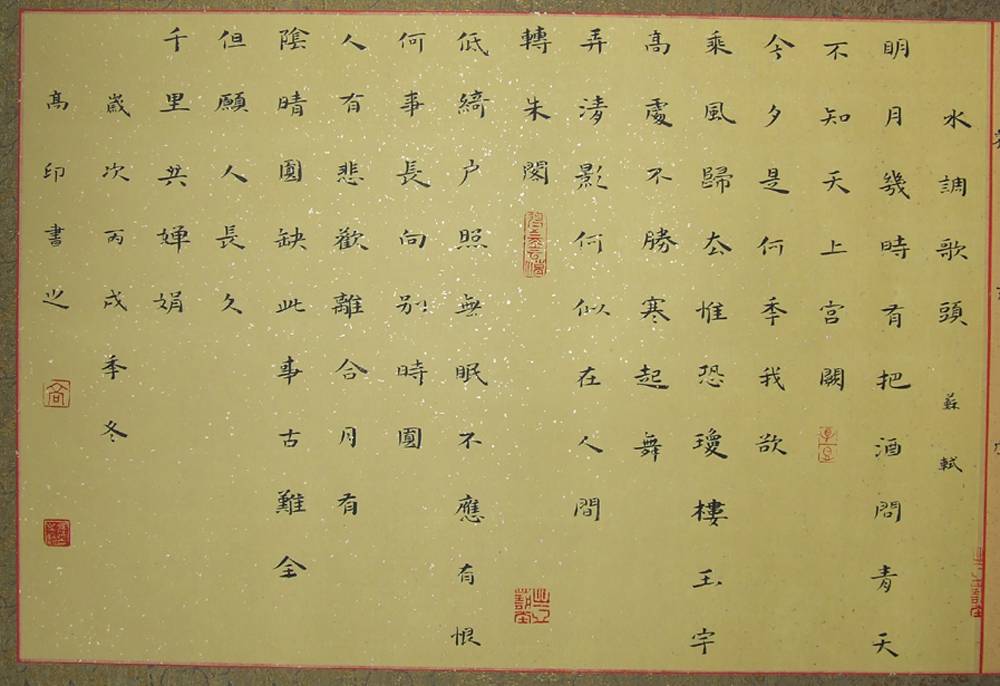 水調歌頭 蘇軾
明月幾時有把酒問青天
不知天上宮闕
今夕是何季我欲
乘風歸去惟恐瓊樓玉宇
高處不勝寒起舞
弄清影何似在人間
轉朱閣
低綺户照無眠不應有恨
何事長向别時圓
人有悲歡離合月有
陰晴圓缺此事古難全
但願人長久
千里共嬋娟
歲次丙戌季冬
高印書之